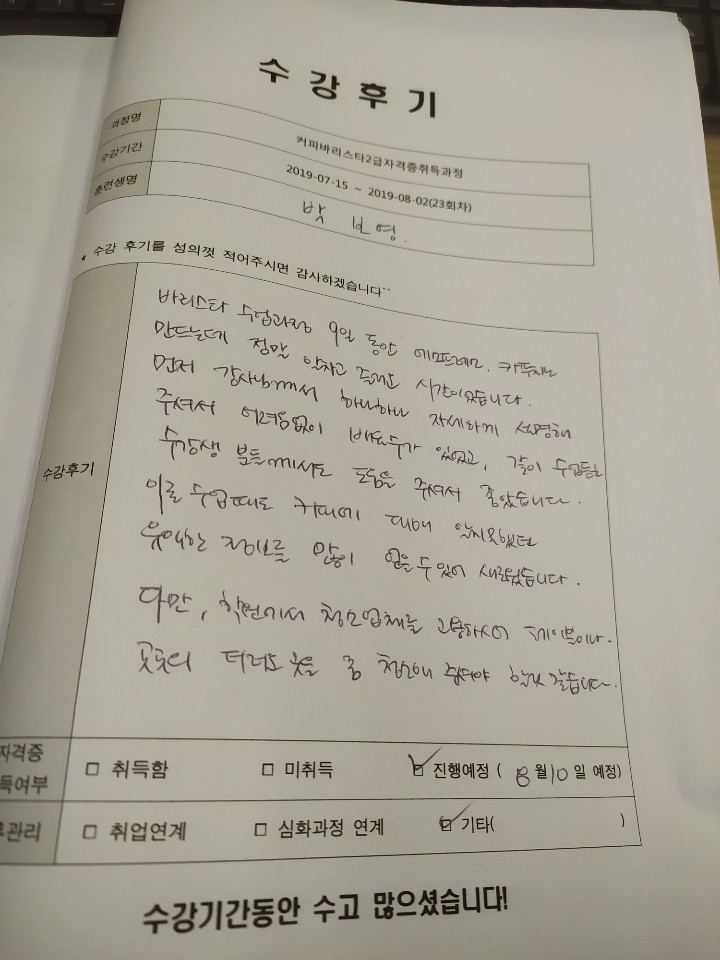 수강후기
과정명 커피바리스타2급자격증취득과정
수강기간 2019-07-15 ~ 2019-08-02(23회차)
훈련생명 박 보영.
* 수강 후기를 성의껏 적어주시면 감사하겠습니다^^
수강후기
바리스타 수업과정 9일 동안 에쏘프레소, 카푸치노
만드는데 정말 알차고 즐거운 시간이었습니다.
먼저 강사님께서 하나하나 자세하게 설명해
주셔서 어려움없이 배울수가 있었고, 같이 수업듣는
수강생 분들께서도 도움을 주셔서 좋았습니다.
이론 수업때도 커피에 대해 알지못했던
유익한 정보를 많이 얻을 수 있어 새로웠습니다.
다만, 학원에서 청소업체를 고용하시어 테이블이나.
곳곳의 더러운 곳을 좀 청소해 주셔야 할것 같습니다.
자격증
득여부
□ 취득함 □ 미취득 ☑ 진행예정 ( 8월10일 예정)
관리 □ 취업연계 □ 심화과정 연계 ☑ 기타( )
수강기간동안 수고 많으셨습니다!